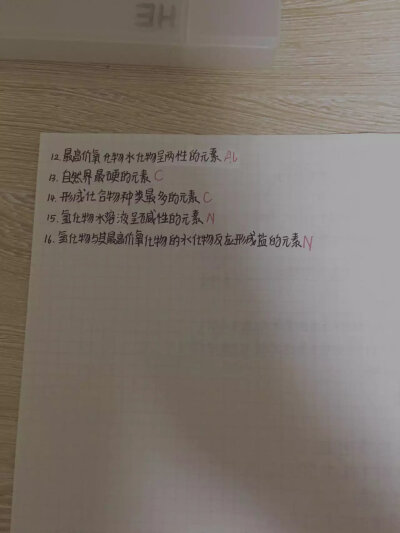 HE
12.最高价氧化物水化物呈两性的元素 Al
13.自然界最硬的元素 C
14.形成化合物种类最多的元素 C
15.氢化物水溶液呈碱性的元素 N
16.氢化物与其最高价氧化物的水化物反应形成盐的元素 N